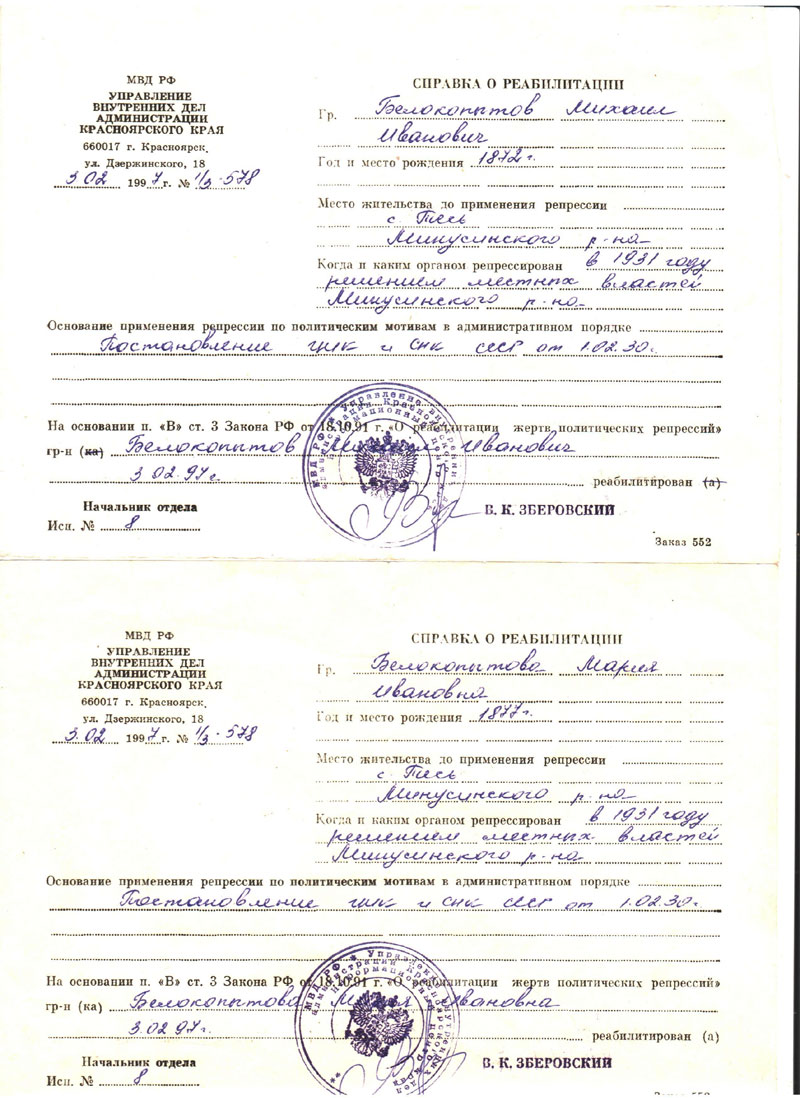 МВД РФ
УПРАВЛЕНИЕ
ВНУТРЕННИХ ДЕЛ
АДМИНИСТРАЦИИ
КРАСНОЯРСКОГО КРАЯ
660017 г. Красноярск,
ул. Дзержинского, 18
3.02 1997 г. № 1/3-578
СПРАВКА О РЕАБИЛИТАЦИИ
Гр. Белокопытов Михаил
Иванович
Год и место рождения 1872 г.
Место жительства до применения репрессии
с. Тесь
Минусинского р-на
Когда и каким органом репрессирован в 1931 году
решением местных властей
Минусинского р-на
Основание применения репрессии по политическим мотивам в административном порядке
Постановление ЦИК и СНК СССР от 1.02.30г.
На основании п. «В» ст. 3 Закона РФ от 18.10.91 г. «О реабилитации жертв политических репрессий»
гр-н (ка) Белокопытов Михаил Иванович
3.02.97г. реабилитирован (а)
Начальник отдела В. К. ЗБЕРОВСКИЙ
Исп. № 8
Заказ 552
МВД РФ
УПРАВЛЕНИЕ
ВНУТРЕННИХ ДЕЛ
АДМИНИСТРАЦИИ
КРАСНОЯРСКОГО КРАЯ
660017 г. Красноярск,
ул. Дзержинского, 18
3.02 1997 г. № 1/3-578
СПРАВКА О РЕАБИЛИТАЦИИ
Гр. Белокопытова Мария
Ивановна
Год и место рождения 1877г.
Место жительства до применения репрессии
с. Тесь
Минусинского р-на
Когда и каким органом репрессирован в 1931 году
решением местных властей
Минусинского р-на
Основание применения репрессии по политическим мотивам в административном порядке
Постановление ЦИК и СНК СССР от 1.02.30г.
На основании п. «В» ст. 3 Закона РФ от 18.10.91 г. «О реабилитации жертв политических репрессий»
гр-н (ка) Белокопытова Мария Ивановна
3.02.97г. реабилитирован (а)
Начальник отдела В. К. ЗБЕРОВСКИЙ
Исп. № 8